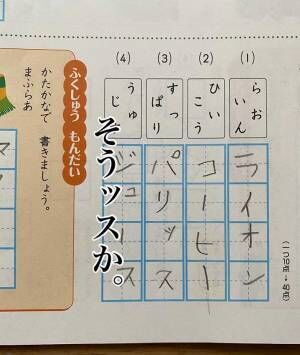 (一つ10点→40点)
(1)
らおん
いん
ライオン
(2)
ひい
こう
コーヒー
(3)
すっ
ぱり
パリッス
(4)
うゅ
じ
ジュース
そうッスか。
ふくしゅう もんだい
かたかなで 書きましょう。
まふらあ
マ